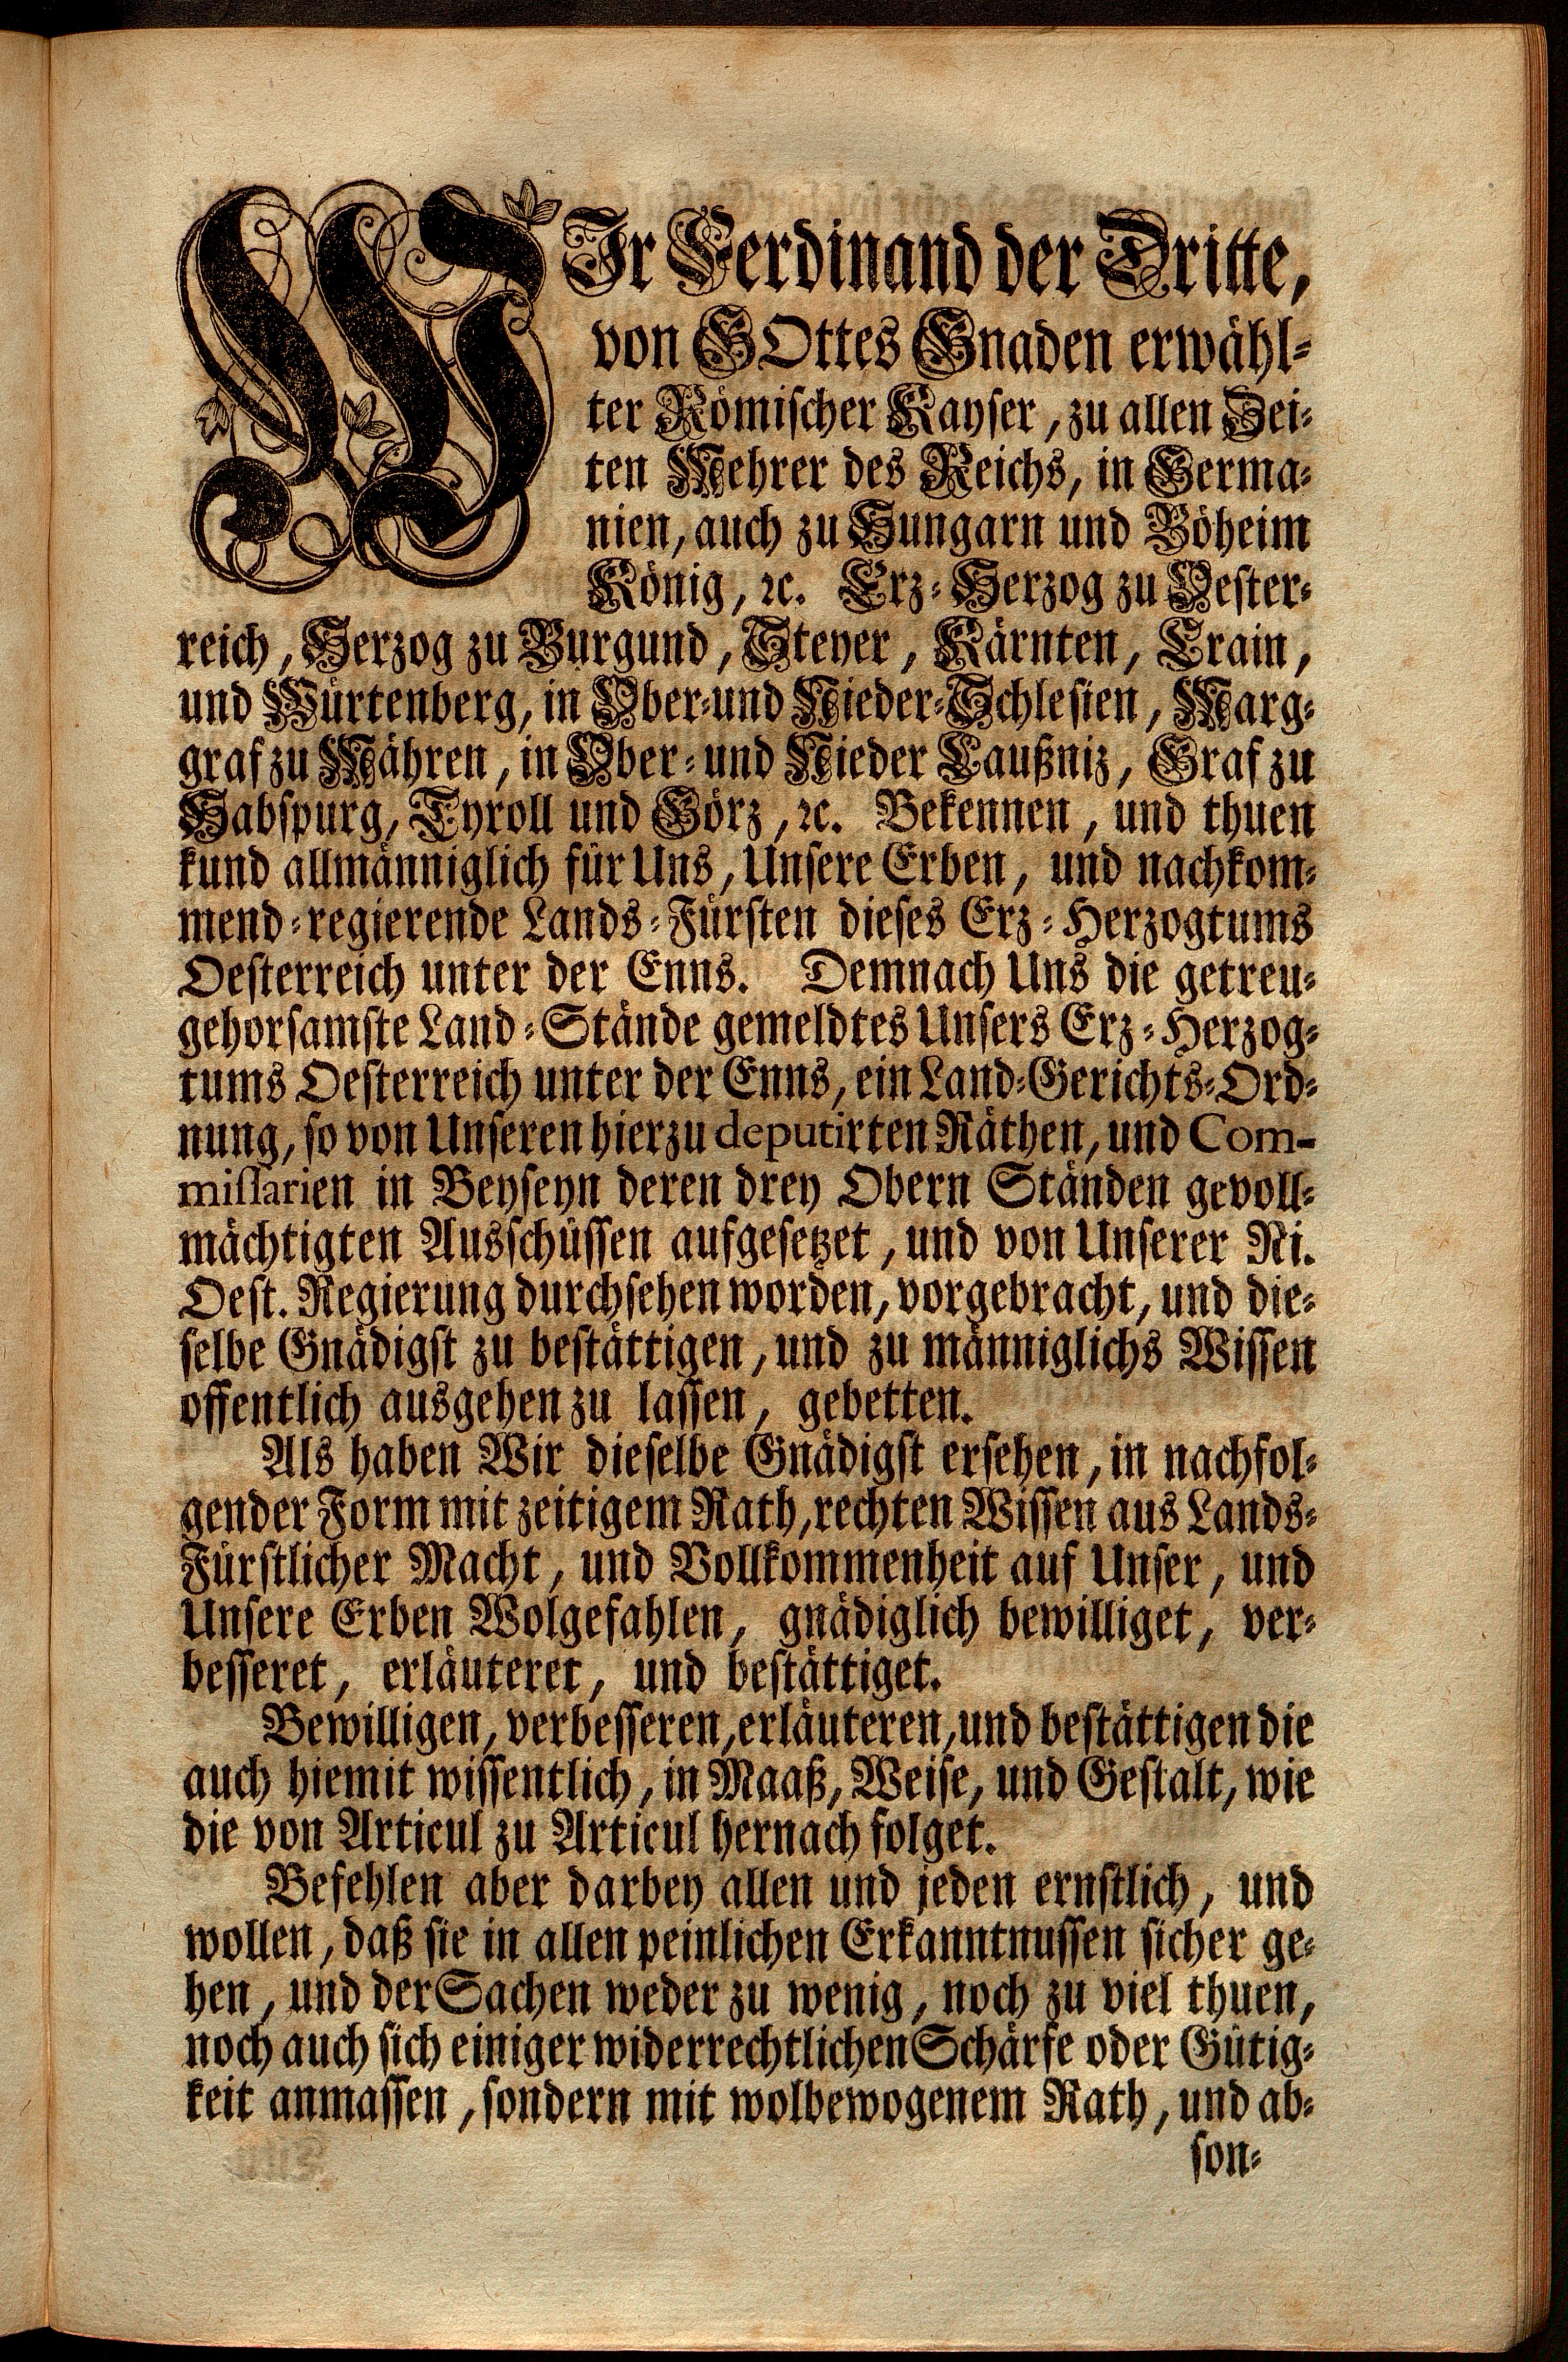 WIr Ferdinand der Dritte,
von GOttes Gnaden erwähl-
ter Römischer Kayser, zu allen Zei-
ten Mehrer des Reichs, in Germa-
nien, auch zu Hungarn und Böheim
König, ꝛc. Erz-Herzog zu Oester-
reich, Herzog zu Burgund, Steyer, Kärnten, Crain,
und Würtenberg, in Ober-und Nieder-Schlesien, Marg-
graf zu Mähren, in Ober- und Nieder Laußniz, Graf zu
Habspurg, Tyroll und Görz, ꝛc. Bekennen, und thuen
kund allmänniglich für Uns, Unsere Erben, und nachkom-
mend-regierende Lands-Fürsten dieses Erz-Herzogtums
Oesterreich unter der Enns. Demnach Uns die getreu-
gehorsamste Land-Stände gemeldtes Unsers Erz-Herzog-
tums Oesterreich unter der Enns, ein Land-Gerichts-Ord-
nung, so von Unseren hierzu deputirten Räthen, und Com-
missarien in Beyseyn deren drey Obern Ständen gevoll-
mächtigten Ausschüssen aufgesetzet, und von Unserer Ni.
Oest. Regierung durchsehen worden, vorgebracht, und die-
selbe Gnädigst zu bestättigen, und zu männiglichs Wissen
offentlich ausgehen zu lassen, gebetten.
Als haben Wir dieselbe Gnädigst ersehen, in nachfol-
gender Form mit zeitigem Rath, rechten Wissen aus Lands-
Fürstlicher Macht, und Vollkommenheit auf Unser, und
Unsere Erben Wolgefahlen, gnädiglich bewilliget, ver-
besseret, erläuteret, und bestättiget.
Bewilligen, verbesseren, erläuteren, und bestättigen die
auch hiemit wissentlich, in Maaß, Weise, und Gestalt, wie
die von Articul zu Articul hernach folget.
Befehlen aber darbey allen und jeden ernstlich, und
wollen, daß sie in allen peinlichen Erkanntnussen sicher ge-
hen, und der Sachen weder zu wenig, noch zu viel thuen,
noch auch sich einiger widerrechtlichen Schärfe oder Gütig-
keit anmassen, sondern mit wolbewogenem Rath, und ab-
son-